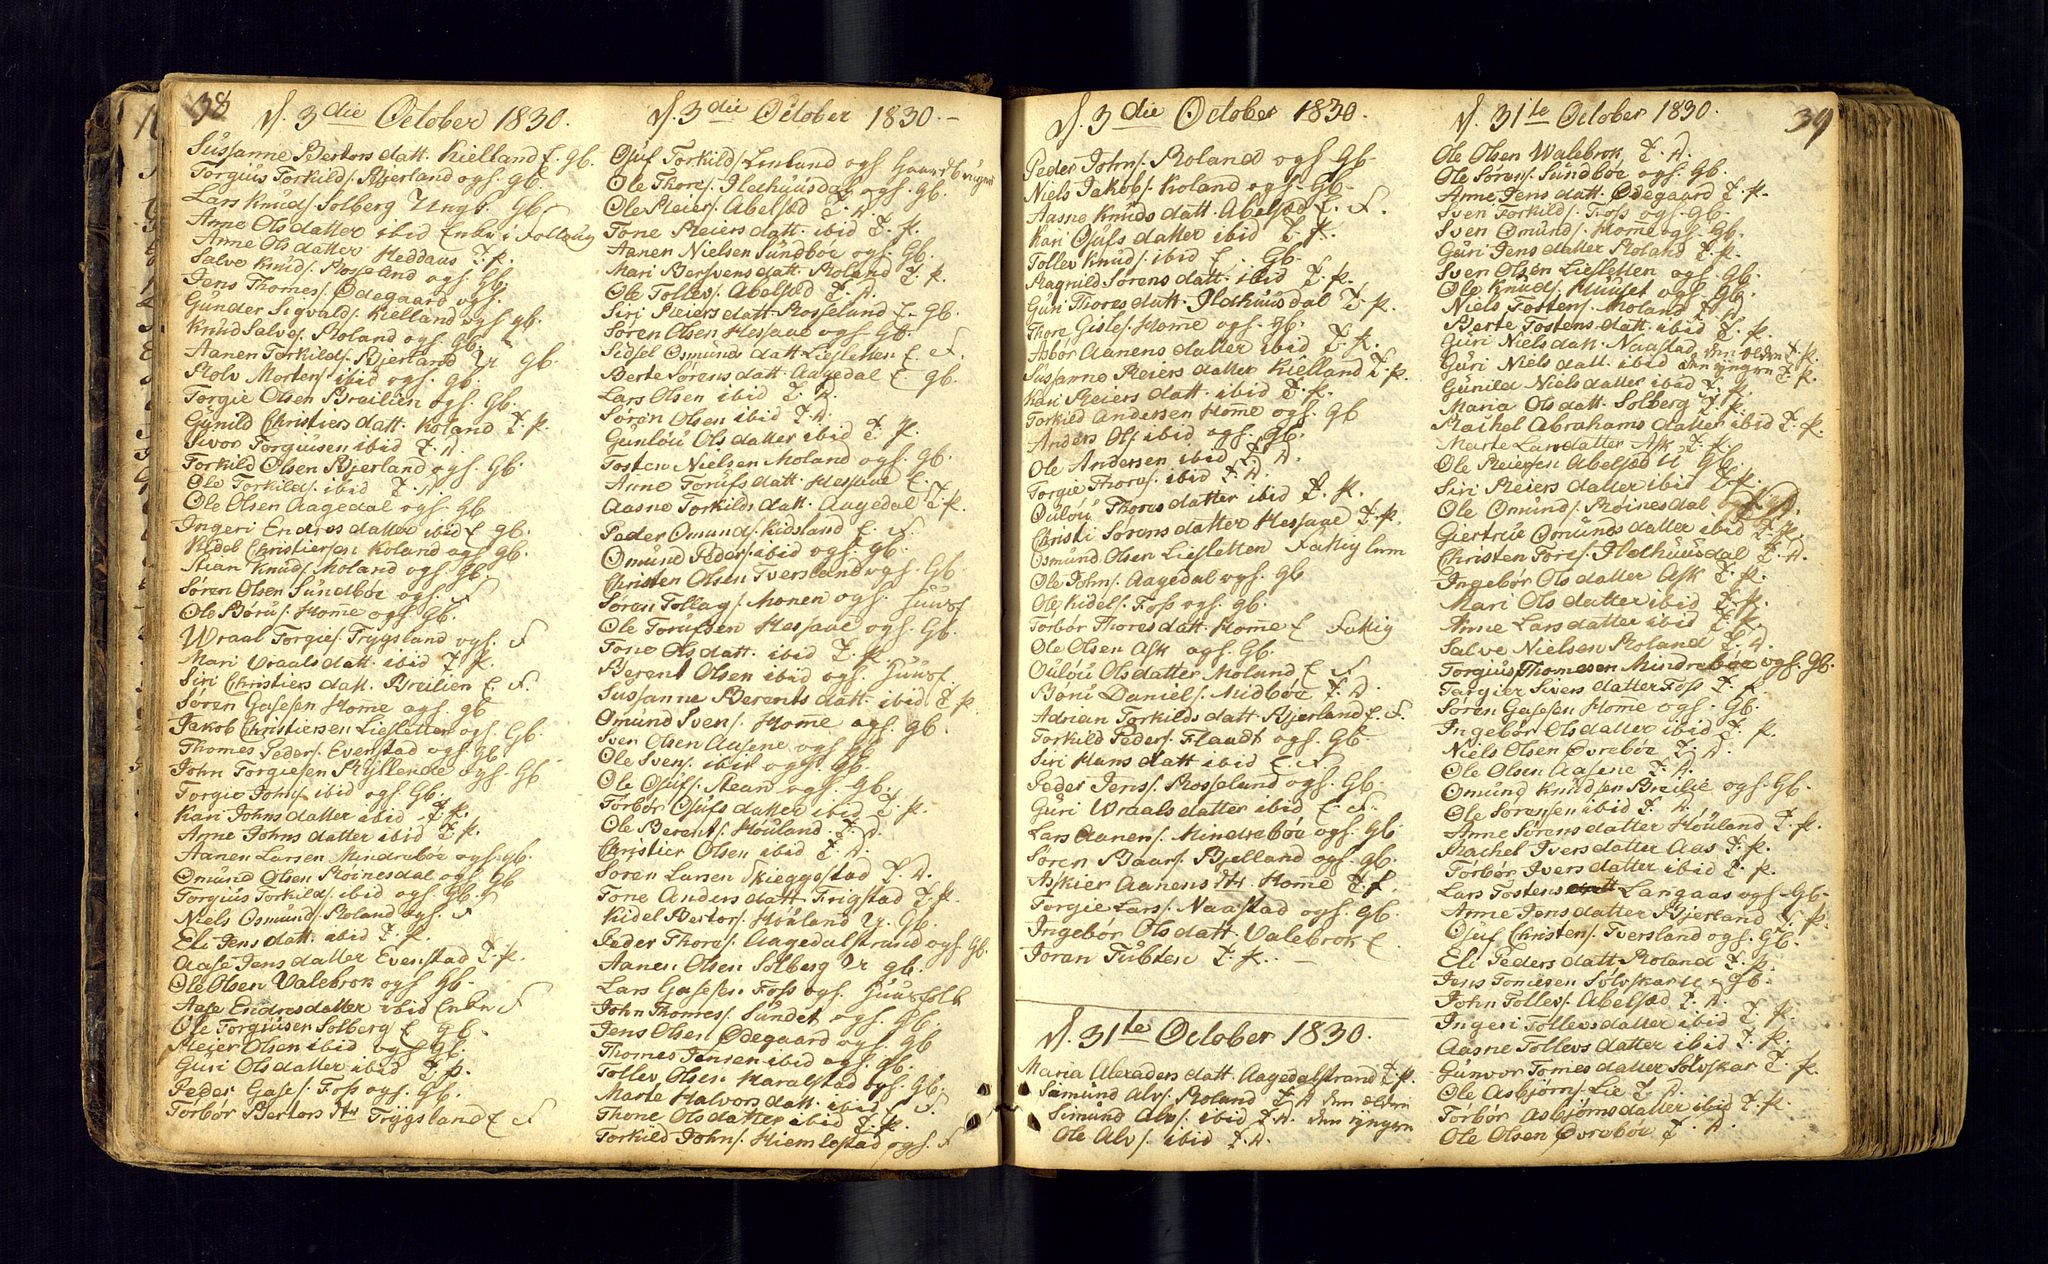 38
d. 3die October 1830.
Susanne Bertors datt. Kielland E. Gb.
Torgius Torkilds. Bjerland ogh. Gb.
Lars Knuds. Solberg Ungk. Gb.
Anne Olsdatter ibid Enke i Følleug
Anne Olsdatter Heddaas T. p.
Salve Knuds. Rosseland ogh. Gb.
Jens Thomes. Ødegaard ogh.
Gunder Sigvalds. Kielland ogh. Gb.
Knud Salves. Roland ogh. Gb.
Aanen Torkilds. Bjerland Gb.
Rolv Mortens. ibid ogh. Gb.
Torgie Olsen Breilien ogh. Gb.
Gunild Christiers datt. Roland T. p.
Sivor Torgiusen ibid T. D.
Torkild Olsen Bjerland ogh. Gb.
Ole Torkilds. ibid T. D.
Ole Olsen Aagedal ogh. Gb
Ingeri Endres datter ibid E. Gb.
Kidel Christiersen Roland ogh. Gb.
Stian Knuds. Moland ogh. Gb.
Søren Olsen Sundbøe ogh. F
Ole Børus. Home ogh. Gb.
Wraal Torgies. Trygsland ogh. F
Mari Vraals datt. ibid T. p.
Siri Christiers datt. Breilien E. F.
Søren Gasesen Home ogh. Gb
Jakob Christiersen Liesletten ogh. Gb.
Thomes Peders. Evenstad ogh. Gb.
John Torgiesen Ryllende ogh. Gb
Torgie Johns. ibid ogh. Gb.
Kari Johns datter ibid T. p.
Anne Johns datter ibid T. p.
Aanen Larsen Mindrebøe ogh. Gb.
Omund Olsen Røinesdal ogh. Gb
Torgius Torkilds. ibid ogh. Gb.
Niels Osmunds. Roland ogh. F
Eli Jens datt. ibid T. p.
Aase Jens datter Evenstad T. p.
Ole Olsen Valebrok ogh. Gb.
Aase Endresdatter ibid Enke F
Ole Torgiusen Solberg E Gb.
Reier Olsen ibid ogh. Gb.
Guri Olsdatter ibid T. p.
Peder Gases. Foss ogh. Gb.
Torbor Bertors dtr Trygsland E F
d. 3die October 1830.
Osuf Torkilds. Lenland ogh. Gaardbruger
Ole Thores. Ildhuusdal ogh. Gb.
Ole Reiers. Abelsæd T. D.
Tone Reiers datt. ibid T. p.
Aanen Nielsen Sundbøe ogh. Gb.
Mari Bersvens datt. Roland T. p.
Ole Tollevs. Abelsæd T. D.
Siri Reiers datt. Rosseland E. Gb.
Søren Olsen Hessaae ogh. Gb.
Sidsel Osmunds datt. Liesletten E. F.
Berte Sørens datt. Aagedal E. Gb.
Lars Olsen ibid T. D.
Søren Olsen ibid T. D.
Gunlou Olsdatter ibid T. p.
Tosten Nielsen Moland ogh. Gb.
Anne Torufs datt. Hessaae E.
Aasne Torkilds datt. Aagedal T. p.
Peder Omunds. Kidsland E. F.
Omund Peders. ibid ogh. Gb.
Christen Olsen Tversland ogh. Gb
Søren Tollags. Monen ogh. Huusf.
Ole Torufsen Hessaae ogh. Gb.
Tone Olsdatt. ibid T. p.
Berent Olsen ibid ogh. Huusf.
Susanne Berents datt. ibid T. p.
Omund Svens. Home ogh. Gb.
Sven Olsen Aasene ogh. Gb
Ole Svens. ibid ogh. Gb.
Ole Osufs. Stean ogh. Gb.
Torbor Osufs datter ibid T. p.
Ole Berents. Houland T. D.
Christier Olsen ibid T. D.
Søren Larsen Skieggestad T. D.
Tone Anders datt. Frigstad T. p.
Kidel Bertors. Hvaland Gb.
Peder Thores. Aagedalstrand ogh. Gb.
Aanen Olsen Solberg Gb.
Lars Gasesen Foss ogh. Huusfolk
John Thomes. Sundet ogh. Gb.
Jens Olsen Ødegaard ogh. Gb
Thomes Jensen ibid ogh. Gb.
Tollev Olsen Haralstad ogh. Gb.
Marte Halvors datt. ibid E F.
Thone Olsdatter ibid T. p.
Torkild Johns. Hiemlestad ogh. F
d. 3die October 1830.
Peder Johns. Roland ogh. Gb
Niels Jakobs. Roland ogh. Gb.
Aasne Knuds datter Abelsæd E. F.
Kari Osufs datter ibid T. p.
Tollev Knuds. ibid E. Gb.
Ragnild Sørens datt. ibid T. p.
Guri Thores datt. Ildhuusdal T. p.
Thore Gisles. Home ogh. Gb.
Asbor Aanens datter ibid T. p.
Susanne Reiers datter Kielland T. p.
Kari Reiers datt. ibid T. p.
Torkild Andersen Home ogh. Gb
Anders Ols. ibid ogh. Gb.
Ole Andersen ibid T. D.
Torgie Thores. ibid T. D.
Oulou Thores datter ibid T. p.
Christi Sørens datter Hessaae T. p.
Osmund Olsen Liesletten Fattig Lem
Ole Johns. Aagedal ogh. Gb
Ole Kidels. Foss ogh. Gb.
Torbor Thores datt. Home E Fattig
Ole Olsen Ask ogh. Gb.
Oulou Olsdatter Moland E F
Boni Daniels. Midbøe T. D.
Adrian Torkilds datt. Bjerland E. F.
Torkild Peders. Flaadt ogh. Gb
Siri Hans datt ibid E. F
Peder Jens. Rosseland ogh. Gb
Guri Wraals datter ibid E. F.
Lars Aanens. Mindrebøe ogh. Gb
Søren Baars. Bjelland ogh. Gb.
Askier Aanens dtr. Home T. p.
Torgie Lars. Naastad ogh. Gb
Ingebor Olsdatt. Valebrok E
Joran Tubten T. p.
d. 31te October 1830.
Maria Alexaders datt. Aagedalstrand T. p.
Simund Alvs. Roland T. D. den ældre
Simund Alvs. ibid T. D. den yngre
Ole Alvs. ibid T. D.
39
d. 31te October 1830.
Ole Olsen Walebrok T. D.
Ole Sørens. Sundbøe ogh. Gb.
Anne Jens datt. Ødegaard T. p.
Sven Torkilds. Foss ogh. Gb.
Sven Omunds. Home ogh. Gb.
Guri Jens datter Roland T. p.
Sven Olsen Liesletten ogh. Gb.
Ole Knuds. Huuset ogh. Gb.
Niels Tostens. Moland T. D.
Berte Tostens datt. ibid T. p.
Guri Niels datt. Naastad den ældre T. p.
Guri Niels datt. ibid den yngre T. p.
Gunild Niels datter ibid T. p.
Maria Ols datt. Solberg T. p.
Rachel Abrahams datter ibid T. p.
Marte Larsdatter Ask T. p.
Ole Reiersen Abelsæd U Gb.
Siri Reiers datter ibid T. p.
Ole Omunds. Røinesdal T. D.
Giertrue Omunds datter ibid T. p.
Christen Tores. Ildhuusdal T. D.
Ingebor Olsdatter Ask T. p.
Mari Olsdatter ibid T. p.
Anne Larsdatter ibid T. p.
Salve Nielsen Roland T. D.
Torgius Thomesen Mindrebøe ogh. Gb.
Targier Sivers datter Foss T. p.
Søren Gasesen Home ogh. Gb.
Ingebor Olsdatter ibid T. p.
Niels Olsen Øvrebøe T. D.
Ole Olsen Aasene T. D.
Omund Knudsen Breilie ogh. Gb.
Ole Sørensen ibid T. D.
Anne Sørens datter Houland T. p.
Rachel Ivers datter Aas T. p.
Torbor Ivers datter ibid T. p.
Lars Tostens Langaas ogh. Gb.
Anne Jens datter Bjerland T. p.
Osuf Christens. Tversland ogh. Gb.
Eli Peders datt. Roland T. p.
Jens Tomesen Sølvskar U Gb.
John Tollevs. Abelsæd T. D.
Ingeri Tollevs datter ibid T. p.
Aasne Tollevs datter ibid T. p.
Gunvor Tomes datter Sølvskar T. p.
Ole Asbjørns. Lie T. D.
Torbor Asbjørns datter ibid T. p.
Ole Olsen Øvrebøe T. D.